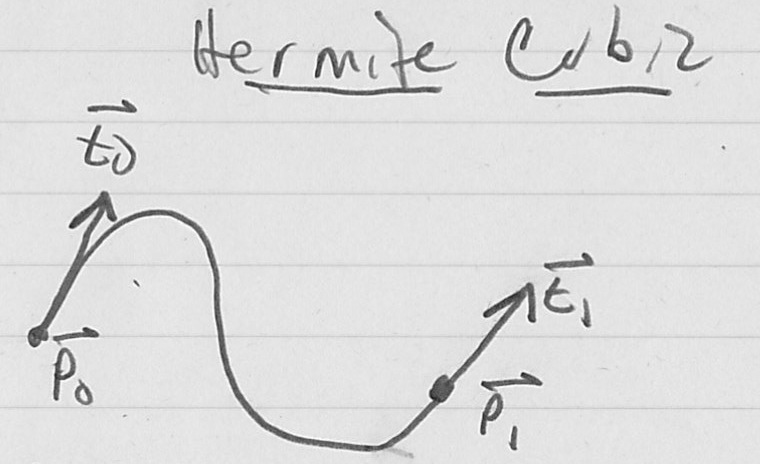 Hermite Cubic
t⃗0
t⃗1
p⃗0
p⃗1